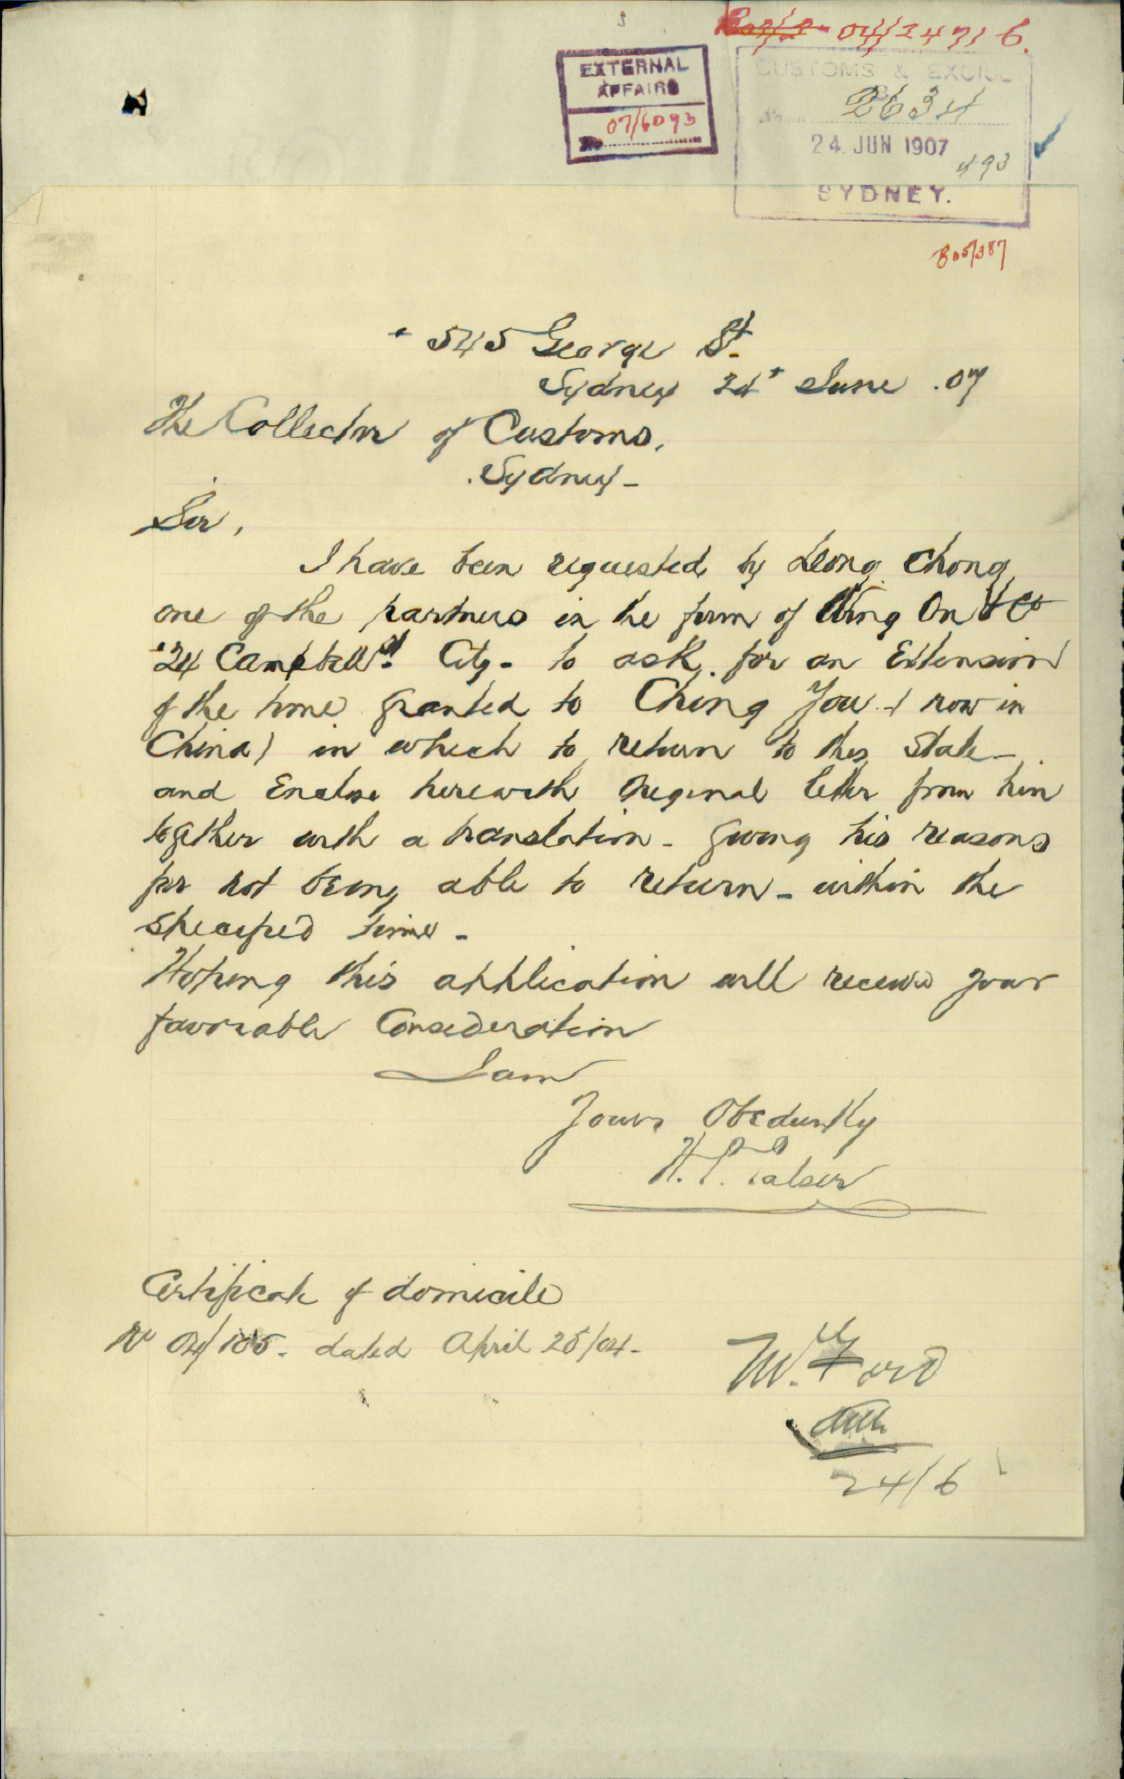 04/24716.
EXTERNAL
AFFAIRS
No 07/6093
CUSTOMS & EXCISE
2634
24 JUN 1907
493
SYDNEY.
545 George St.
Sydney 24th June .07
The Collector of Customs,
Sydney -
Sir,
I have been requested by Leong Chong
one of the partners in the firm of Wing On & Co
24 Campbell St. City - to ask for an Extension
of the time granted to Ching You - ( now in
China ) in which to return to this State -
and Enclose herewith Original letter from him
together with a translation - giving his reasons
for not being able to return - within the
specified time -
Hoping this application will receive your
favorable Consideration
I am
Yours Obediently
H. P.
Certificate of domicile
No 04/105 - dated April 25/04 -
24/6